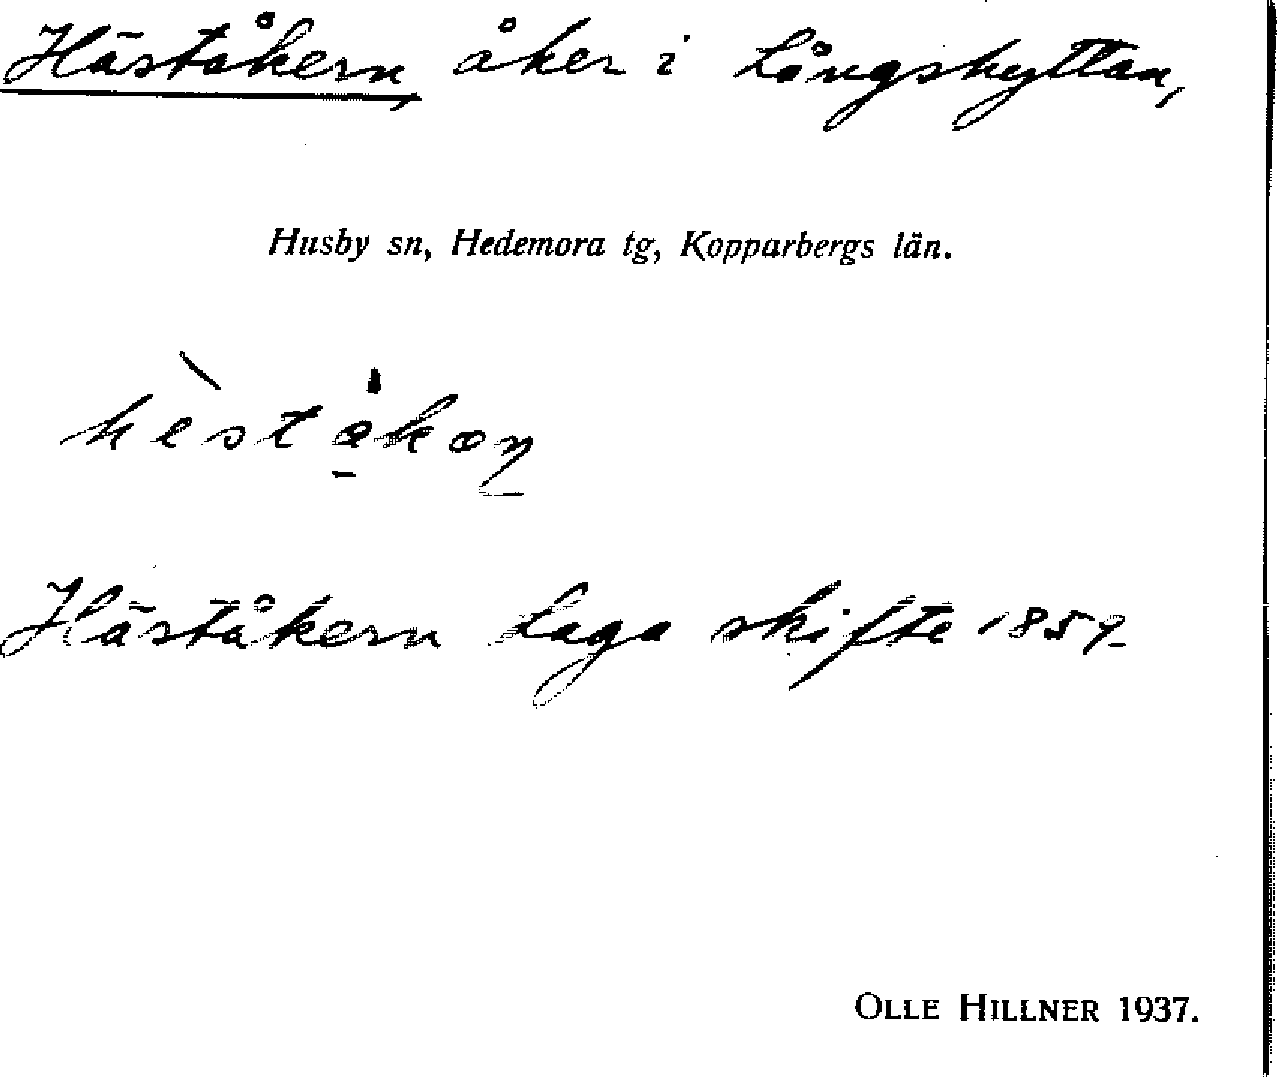 Häståkern, åker i Långshyttan,
Husby sn, Hedemora tg, Kopparbergs län.
Häståkern Laga skifte 1859
OLLE HILLNER 1937.